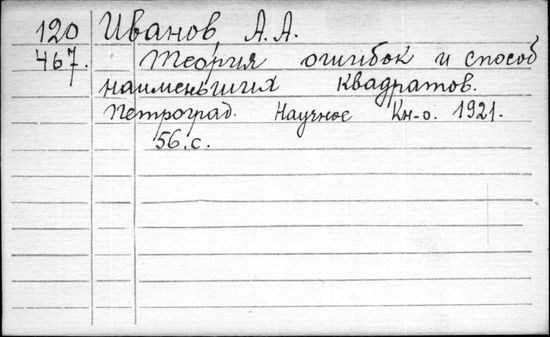 120 Иванов А. А.
467. Теория ошибок и способ
наименьших квадратов.
Петроград. Научное Кн-о. 1921.
56. с.